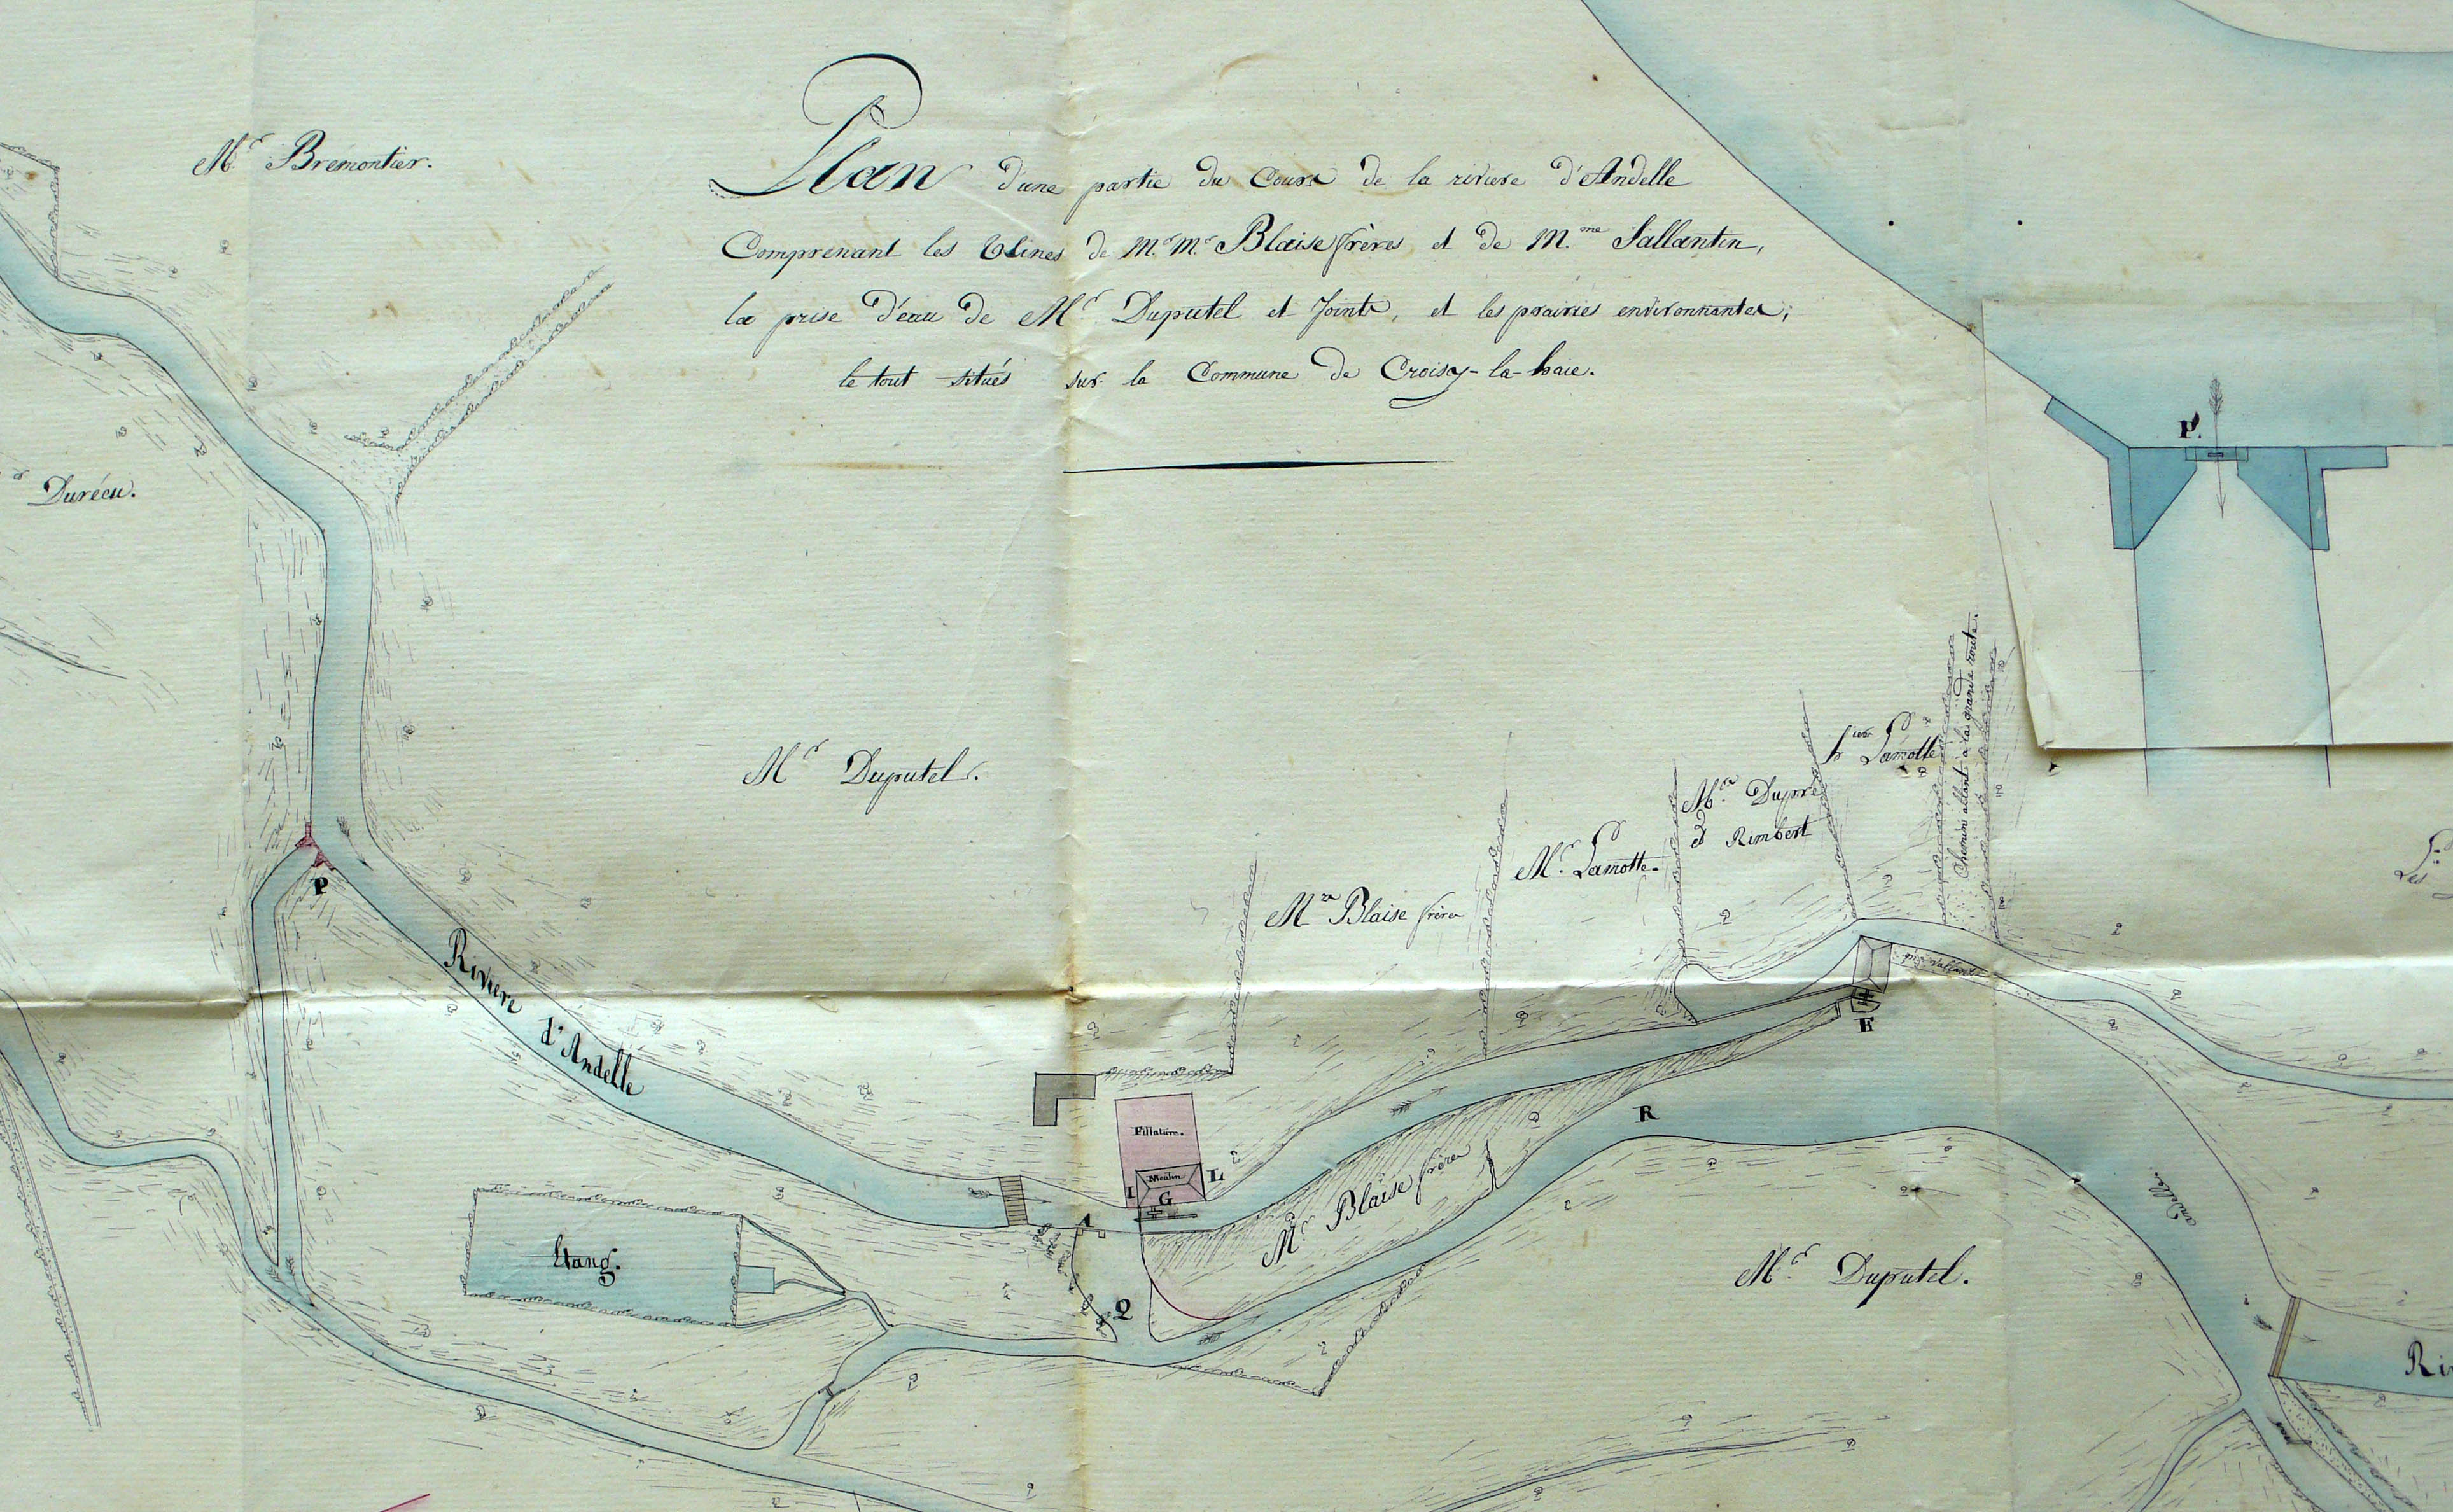 Plan d'une partie du Cours de la riviere d'Andelle
Comprenant les Usines de M.rM.r Blaise frères et de M.me Sallantin,
la prise d'eau de M.r Duputel et Joints, et les prairies environnantes;
le tout situés sur la Commune de Croisy-la-haie.
M.r Bremontier.
Durécu.
P.
M.r Duputel.
h.iers Lamotte
Chemin allant à la grande route.
M.rs Dupré
et Rimbert
M.r Lamotte.
M.rs Blaise frères
P
Riviere d'Andelle
Fillature.
Moulin
L
I
G
A
E
R
M.rs Blaise frères
Etang.
Q
M.r Duputel.
andelle
Ri